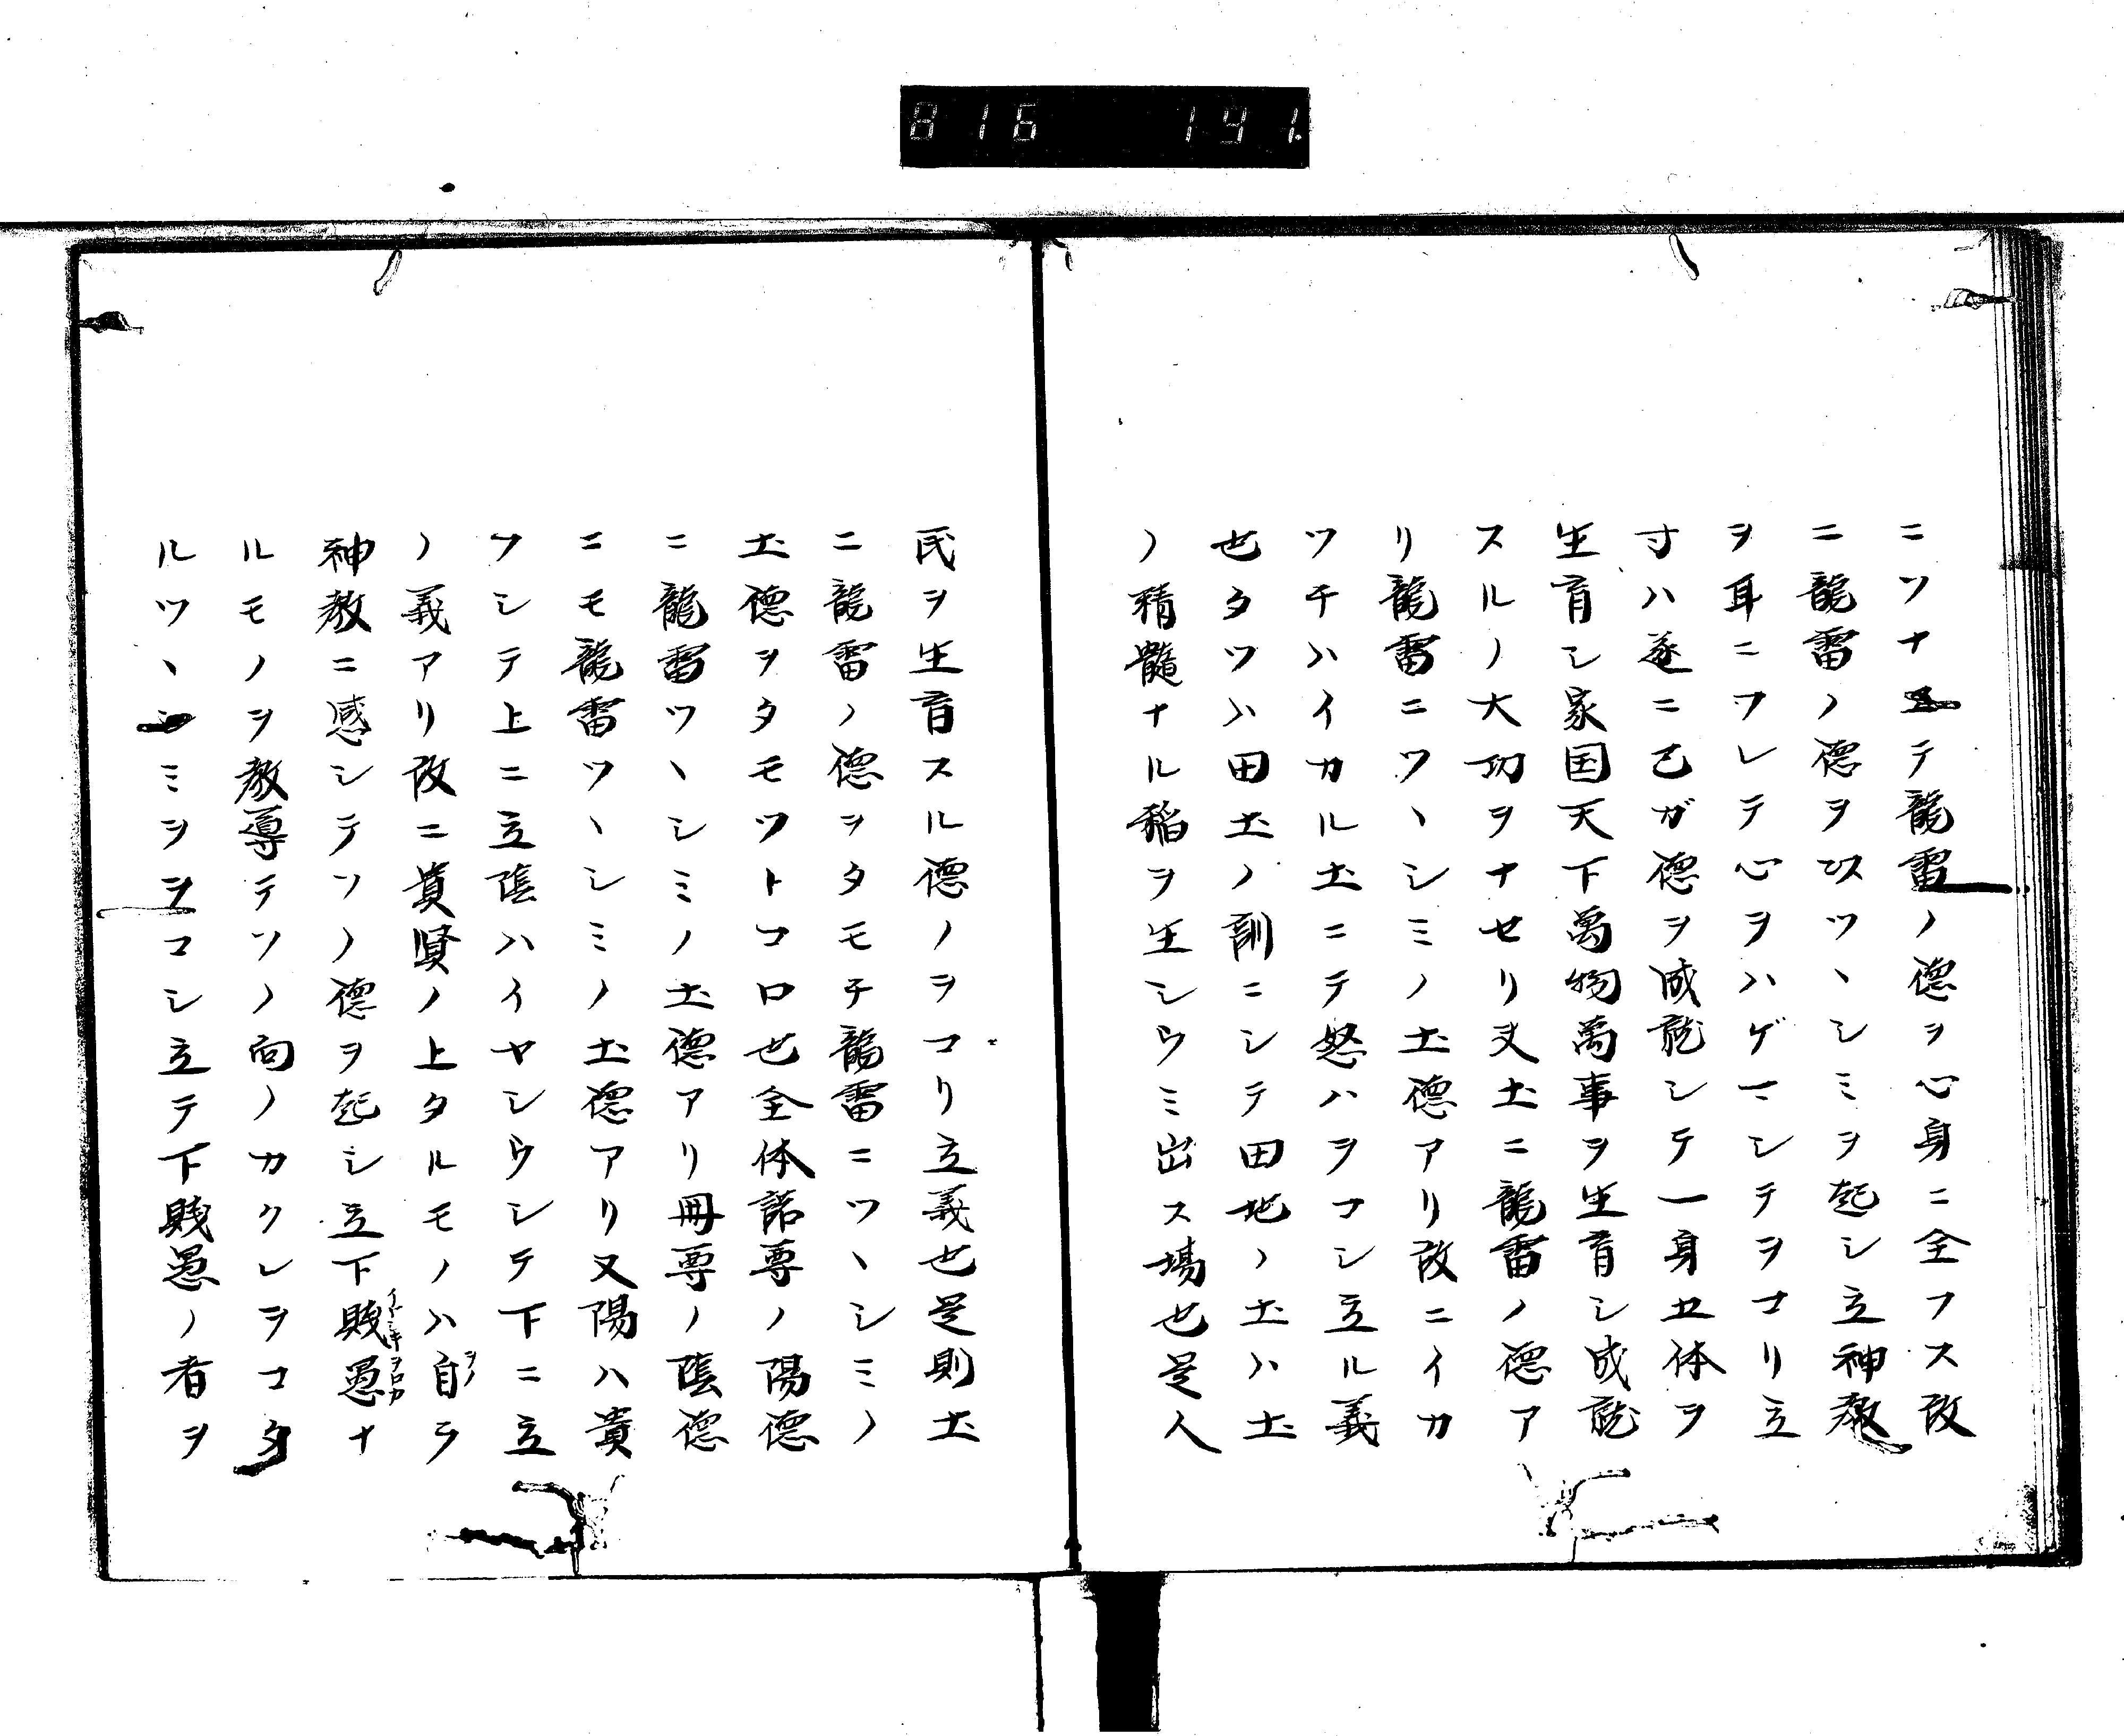 816 191.
ニツナヱテ龍雷ノ德ヲ心身ニ全フス故
ニ龍雷ノ德ヲ以ツヽシミヲ起シ立神教
ヲ耳ニフレテ心ヲハゲマシテヲコリ立
寸ハ遂ニ己ガ德ヲ成就シテ一身五体ヲ
生育シ家国天下萬物萬事ヲ生育シ成就
スルノ大功ヲナセリ又土ニ龍雷ノ德ア
リ龍雷ニツヽシミノ土德アリ故ニイカ
ツチハイカル土ニテ怒ハヲコシ立ル義
也タツハ田土ノ訓ニシテ田地ノ土ハ土
ノ精髓ナル稲ヲ生シウミ出ス場也是人
民ヲ生育スル德ノヲコリ立義也是則土
ニ龍雷ノ德ヲタモチ龍雷ニツヽシミノ
土德ヲタモツトコロ也全体諾尊ノ陽德
ニ龍雷ツヽシミノ土德アリ冊尊ノ陰德
ニモ龍雷ツヽシミノ土德アリ又陽ハ貴
フシテ上ニ立陰ハイヤシウシテ下ニ立
ノ義アリ故ニ貴賢ノ上タルモノハ自ラ
神教ニ感シテソノ德ヲ起シ立下賎愚ナ
ルモノヲ教導テソノ向ノカクレヲコタ
ルツヽシミヲヲコシ立テ下賎愚ノ者ヲ